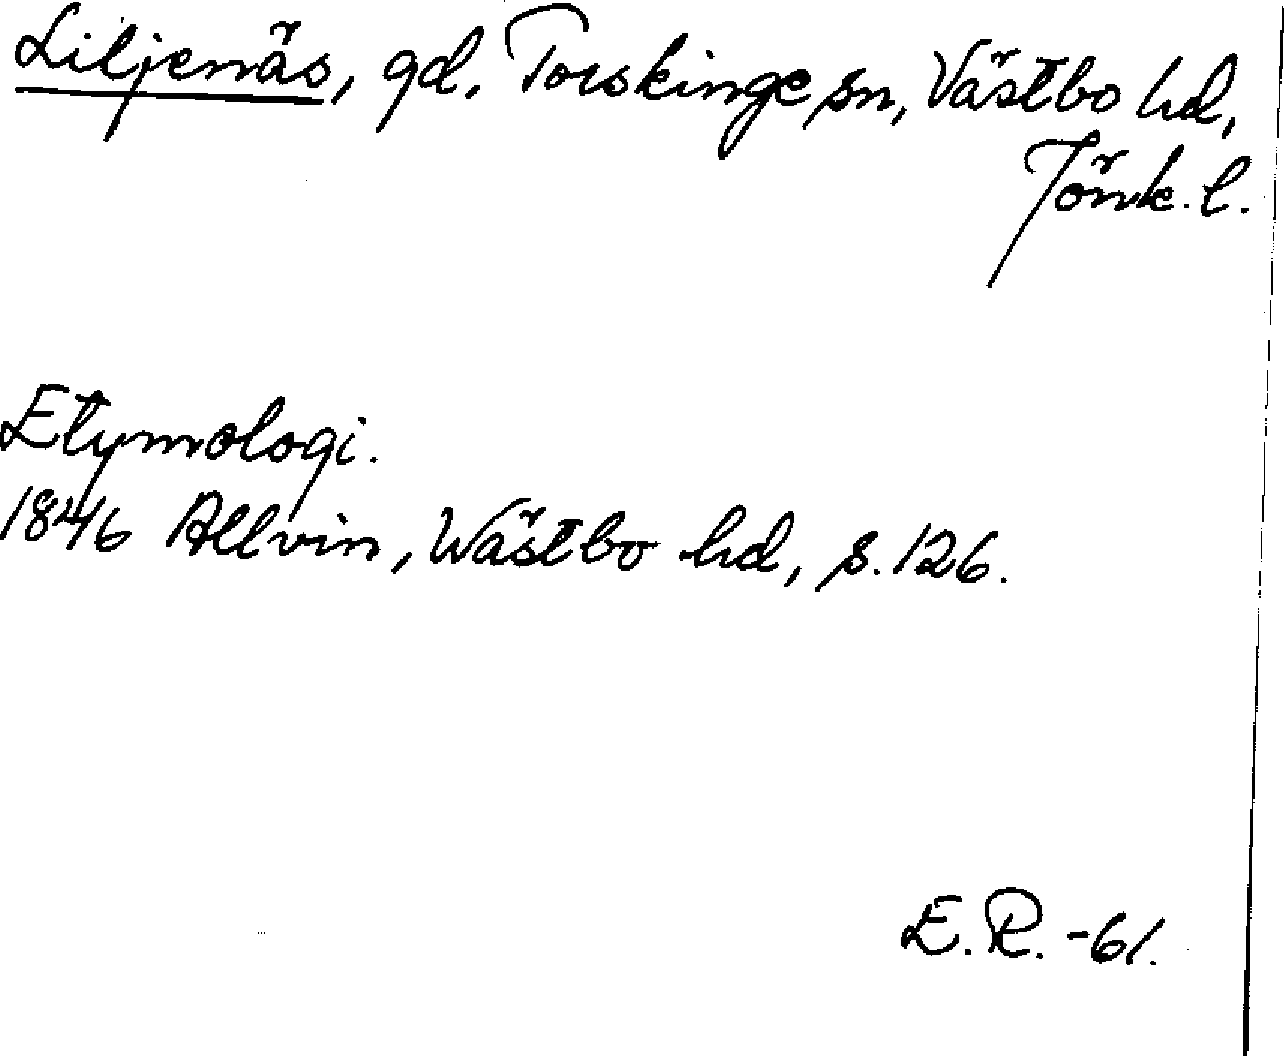 Liljenäs, gd, Torskinge sn, Västbo hd,
Jönk. l.
Etymologi.
1846 Allvin, Wästbo hd, s. 126.
E. R. -61.